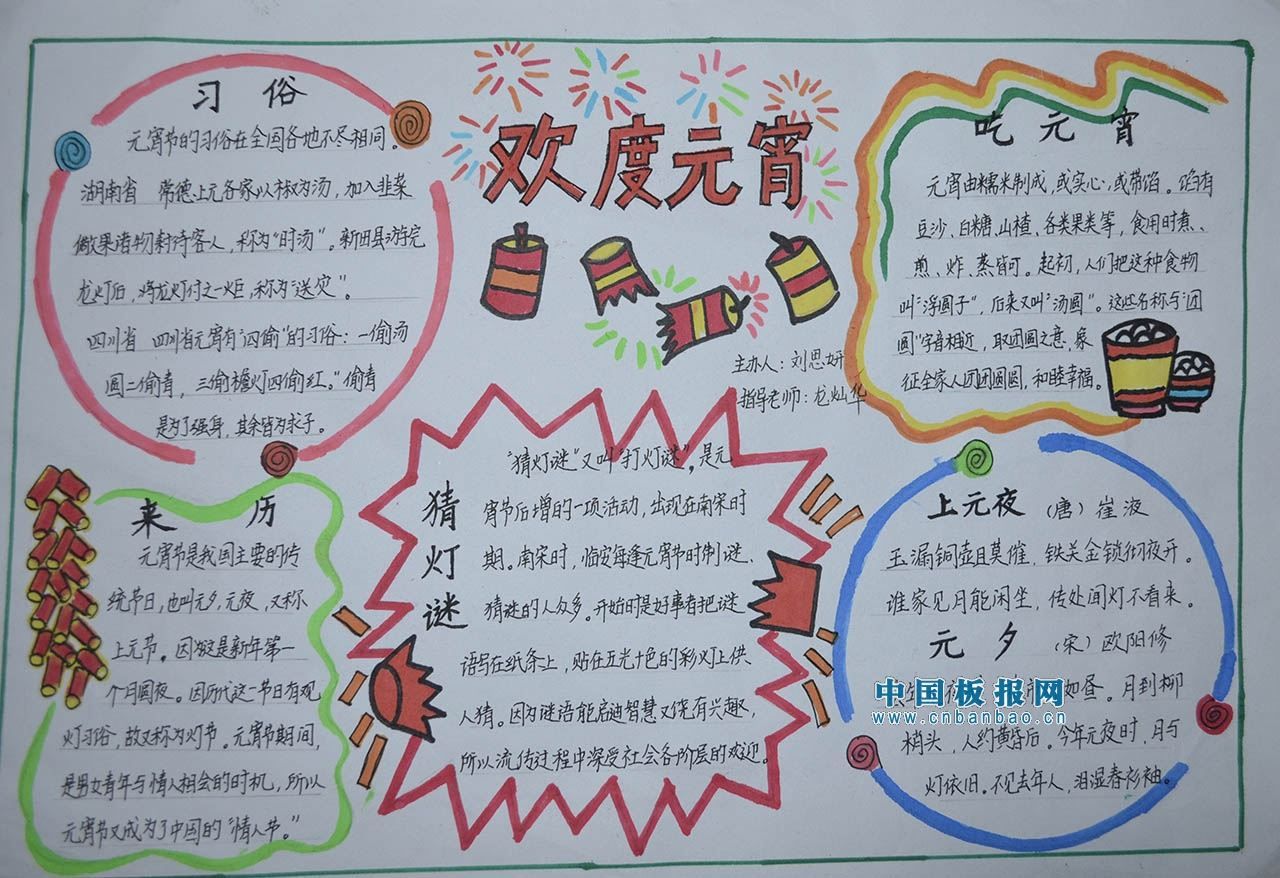 欢度元宵
主办人：刘思妍
指导老师：龙灿华
习 俗
元宵节的习俗在全国各地不尽相同。
湖南省 常德上元各家以椒为汤，加入韭菜
做果诸物款待客人，称为"时汤"。新田县游完
龙灯后，将龙灯付之一炬，称为"送灾"。
四川省 四川省元宵有"四偷"的习俗：一偷汤
圆二偷青，三偷檐灯四偷红。"偷青
是为了强身，其余皆为求子。
吃 元 宵
元宵由糯米制成，或实心，或带馅。馅有
豆沙、白糖、山楂、各类果类等，食用时煮、
煎、炸、蒸皆可。起初，人们把这种食物
叫"浮圆子"，后来又叫"汤圆"。这些名称与"团
圆"字音相近，取团圆之意，象
征全家人团团圆圆，和睦幸福。
来 历
元宵节是我国主要的传
统节日，也叫元夕，元夜，又称
上元节。因为这是新年第一
个月圆夜。因历代这一节日有观
灯习俗，故又称为灯节。元宵节期间，
是男女青年与情人相会的时机，所以
元宵节又成为了中国的"情人节。"
猜灯谜
"猜灯谜"又叫"打灯谜"。是元
宵节后增的一项活动，出现在南宋时
期。南宋时，临安每逢元宵节时制谜、
猜谜的人众多。开始时是好事者把谜
语写在纸条上，贴在五光十色的彩灯上供
人猜。因为谜语能启迪智慧又饶有兴趣，
所以流传过程中深受社会各阶层的欢迎。
上元夜 （唐）崔液
玉漏铜壶且莫催，铁关金锁彻夜开。
谁家见月能闲坐，传处闻灯不看来。
元 夕 （宋）欧阳修
如昼。月到柳
梢头，人约黄昏后。今年元夜时，月与
灯依旧。不见去年人，泪湿春衫袖。
中国板报网
www.cnbanbao.cn